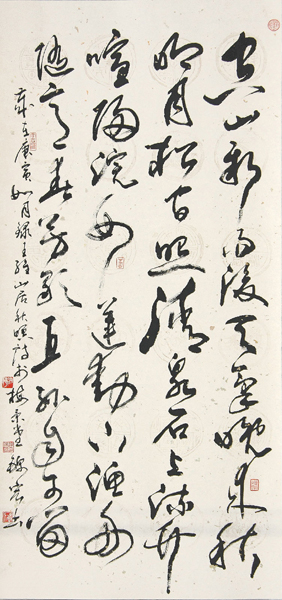 空山新雨後天氣晚來秋
明月松間照清泉石上流竹
喧歸浣女蓮動下漁舟
隨意春芳歇王孫自可留
歲在庚寅如月錄王維山居秋暝詩於